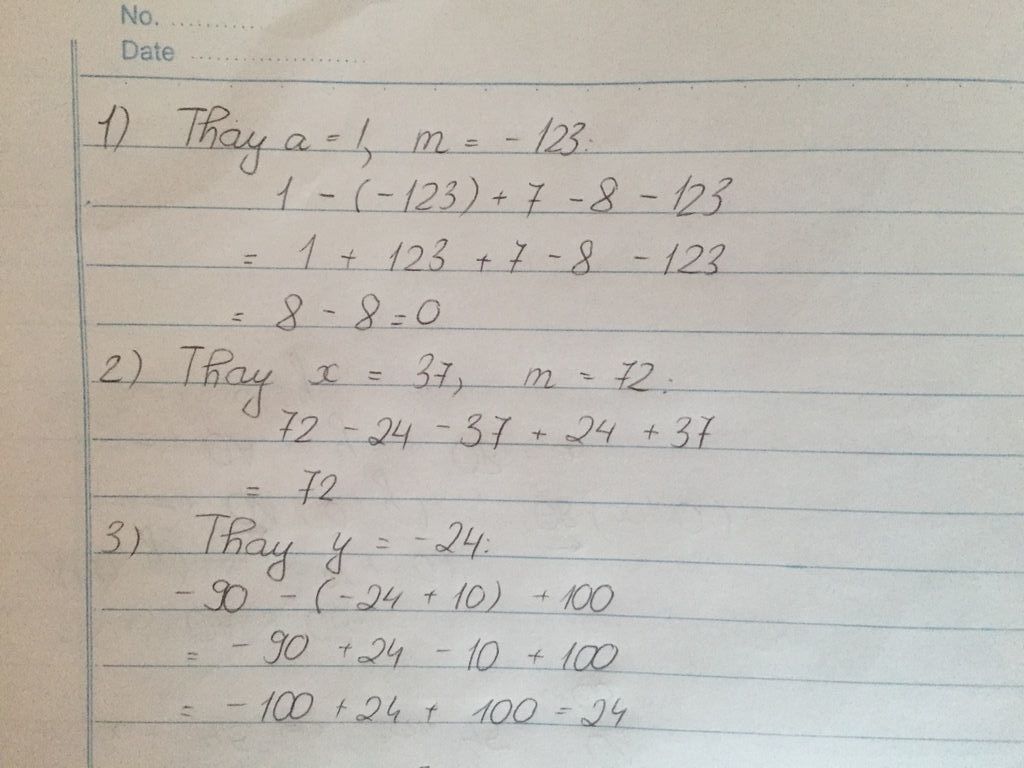 No. ............
Date ......................
1) Thay a = 1, m = - 123:
1 - (-123) + 7 - 8 - 123
= 1 + 123 + 7 - 8 - 123
= 8 - 8 = 0
2) Thay x = 37, m = 72:
72 - 24 - 37 + 24 + 37
= 72
3) Thay y = -24:
- 90 - (-24 + 10) + 100
= - 90 + 24 - 10 + 100
= - 100 + 24 + 100 = 24